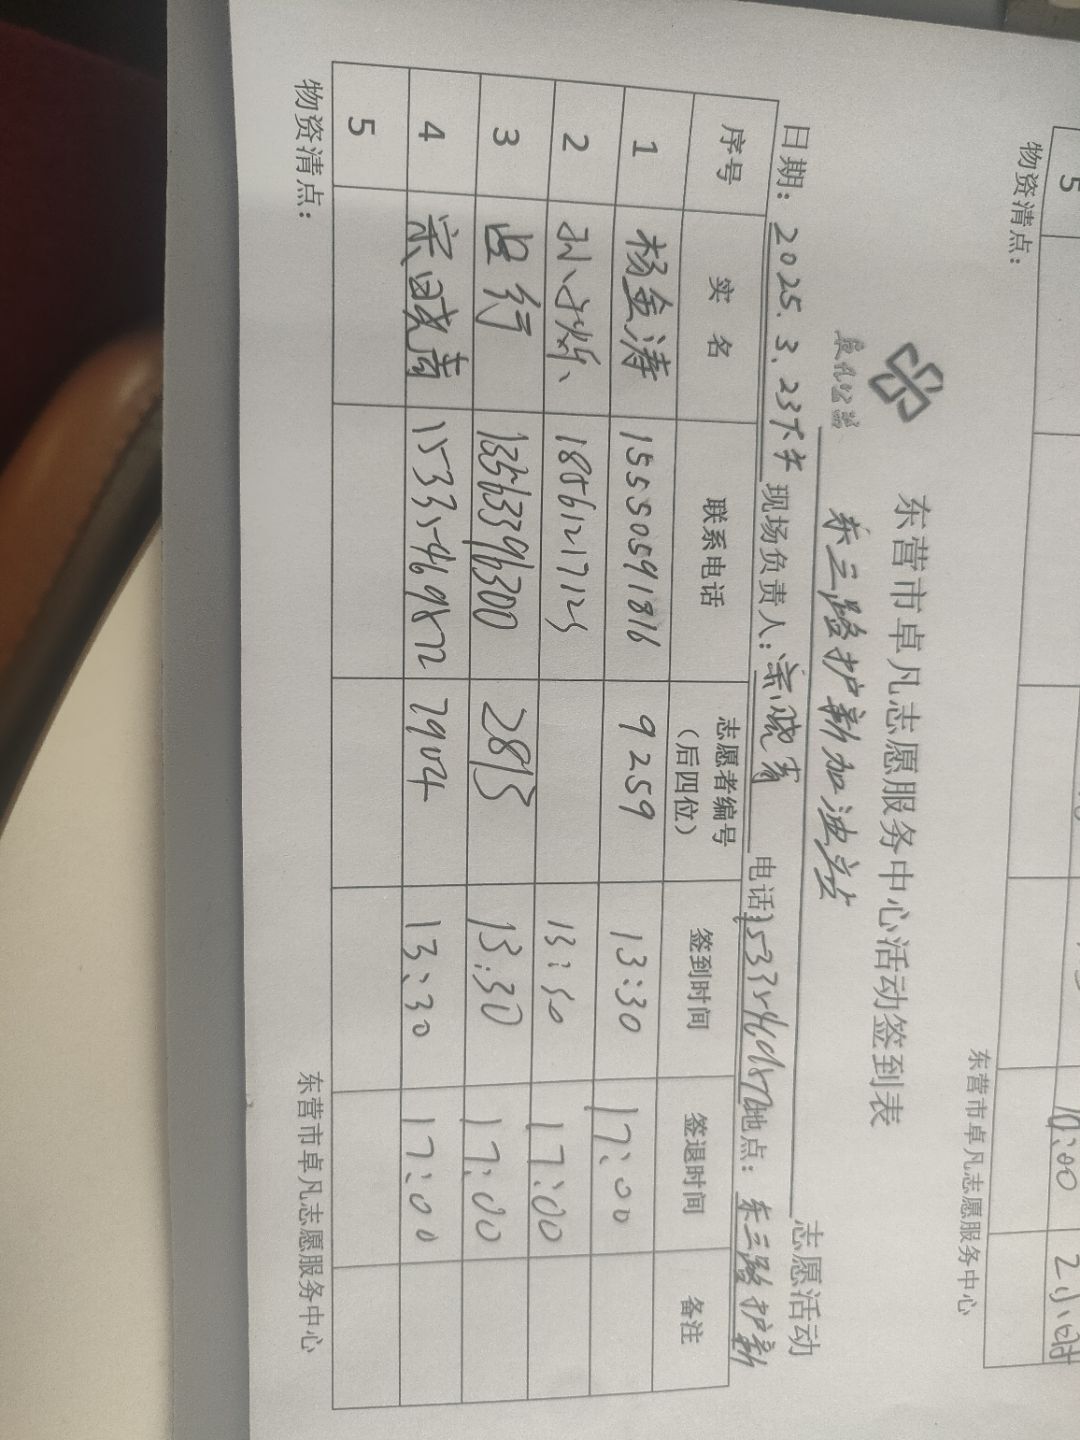 东营市卓凡志愿服务中心活动签到表
东三路护新加油站 志愿活动
日期: 2025.3.23下午 现场负责人: 电话: 15335469872 地点: 东三路护新
序号 实名 联系电话 志愿者编号（后四位） 签到时间 签退时间 备注
1 杨金涛 15550591816 9259 13:30 17:00
2 18561217125 13:30 17:00
3 13563396300 2815 13:30 17:00
4 15335469872 7904 13:30 17:00
5
物资清点: 东营市卓凡志愿服务中心
5
10:00 2小时
物资清点: 东营市卓凡志愿服务中心